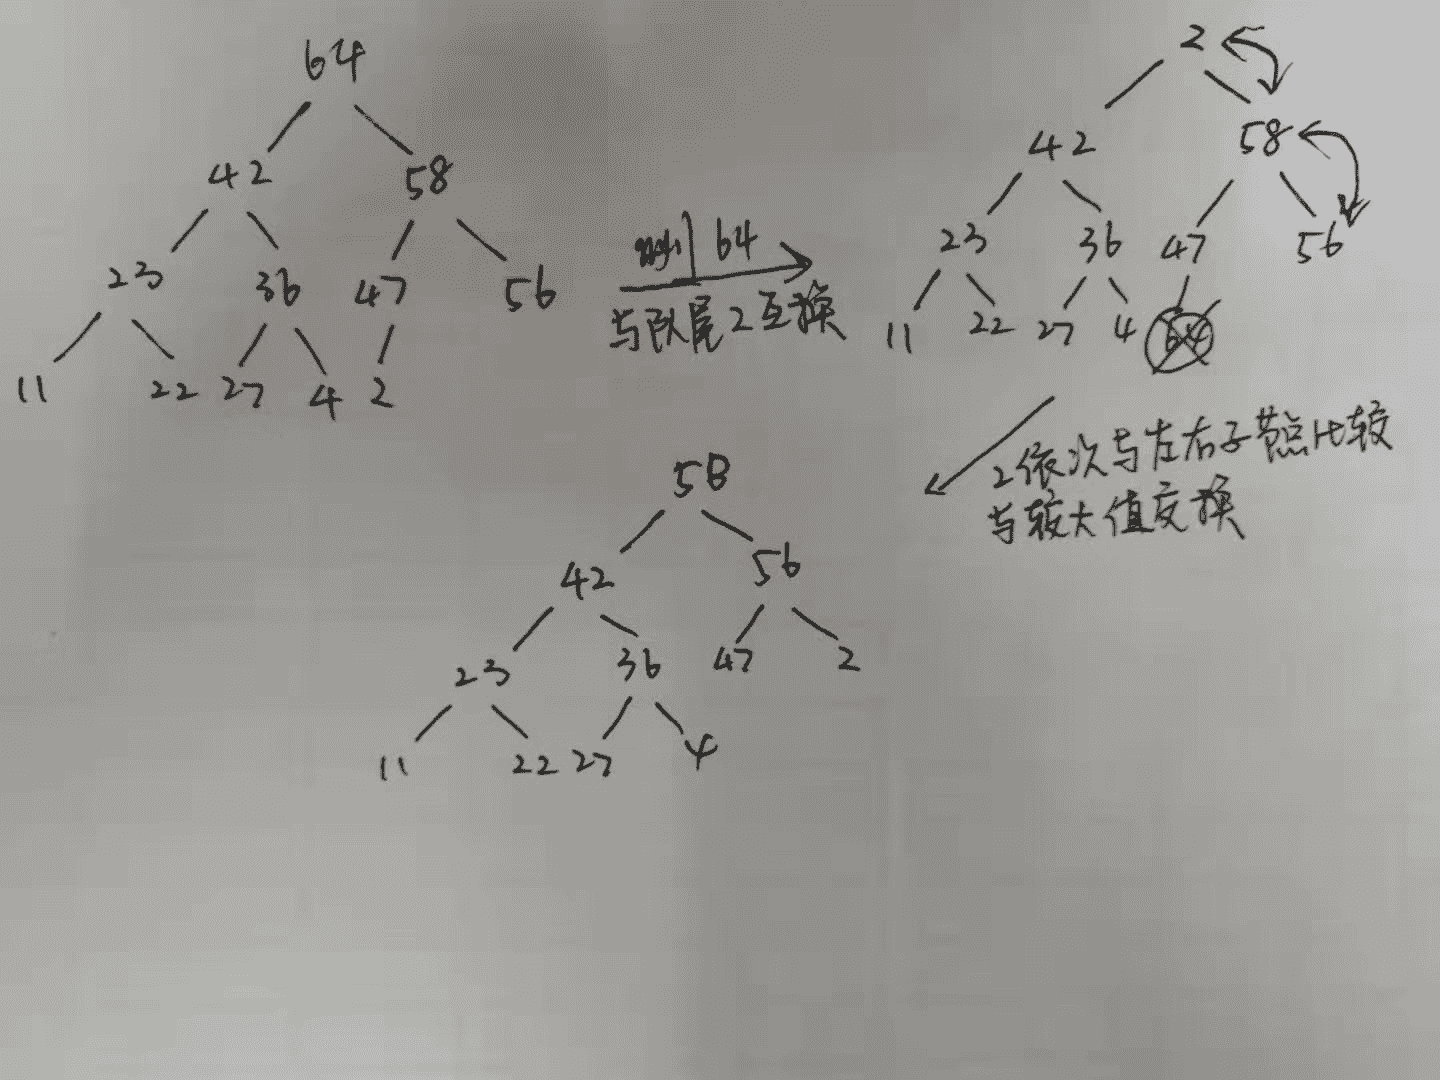 64
42 58
23 36 47 56
11 22 27 4 2
删 64
与队尾2互换
2
42 58
23 36 47 56
11 22 27 4 64
2依次与左右子节点比较
与较大值交换
58
42 56
23 36 47 2
11 22 27 4